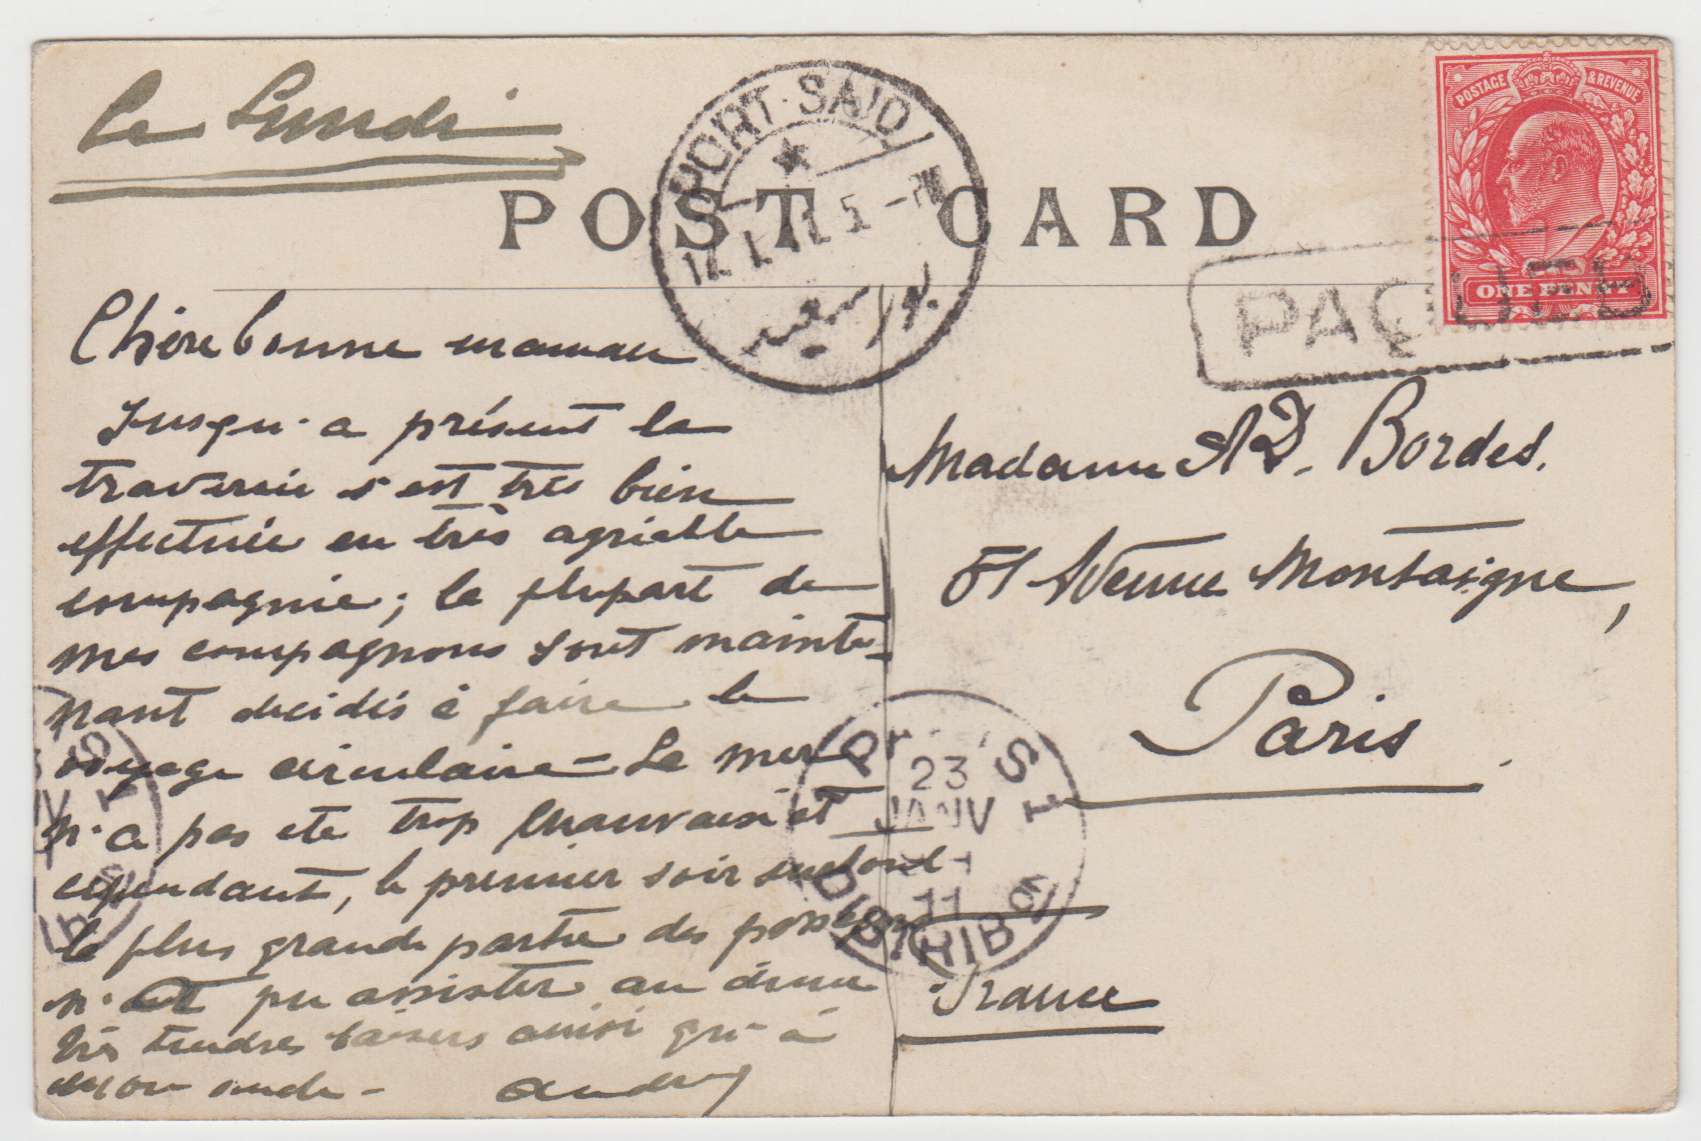 Le Lundi
POST CARD
PORT-SAID
12. I. 11. 5 - PM
بور سعيد
POSTAGE & REVENUE
ONE PENNY
PAQUEB
Chère bonne maman
Jusqu'a présent la
traversée s'est très bien
effectuée en très agréable
compagnie; la plupart de
mes compagnons sont mainte-
nant décidés à faire le
voyage circulaire - La mer
n'a pas été trop mauvaise et
cependant, le premier soir surtout
la plus grande partie des passagers
n'ont pu assister au diner
très tendres baisers ainsi qu'à
André
Madame AD. Bordes.
51 Avenue Montaigne,
Paris
France
PARIS
23
JANV
11
DISTRIBON